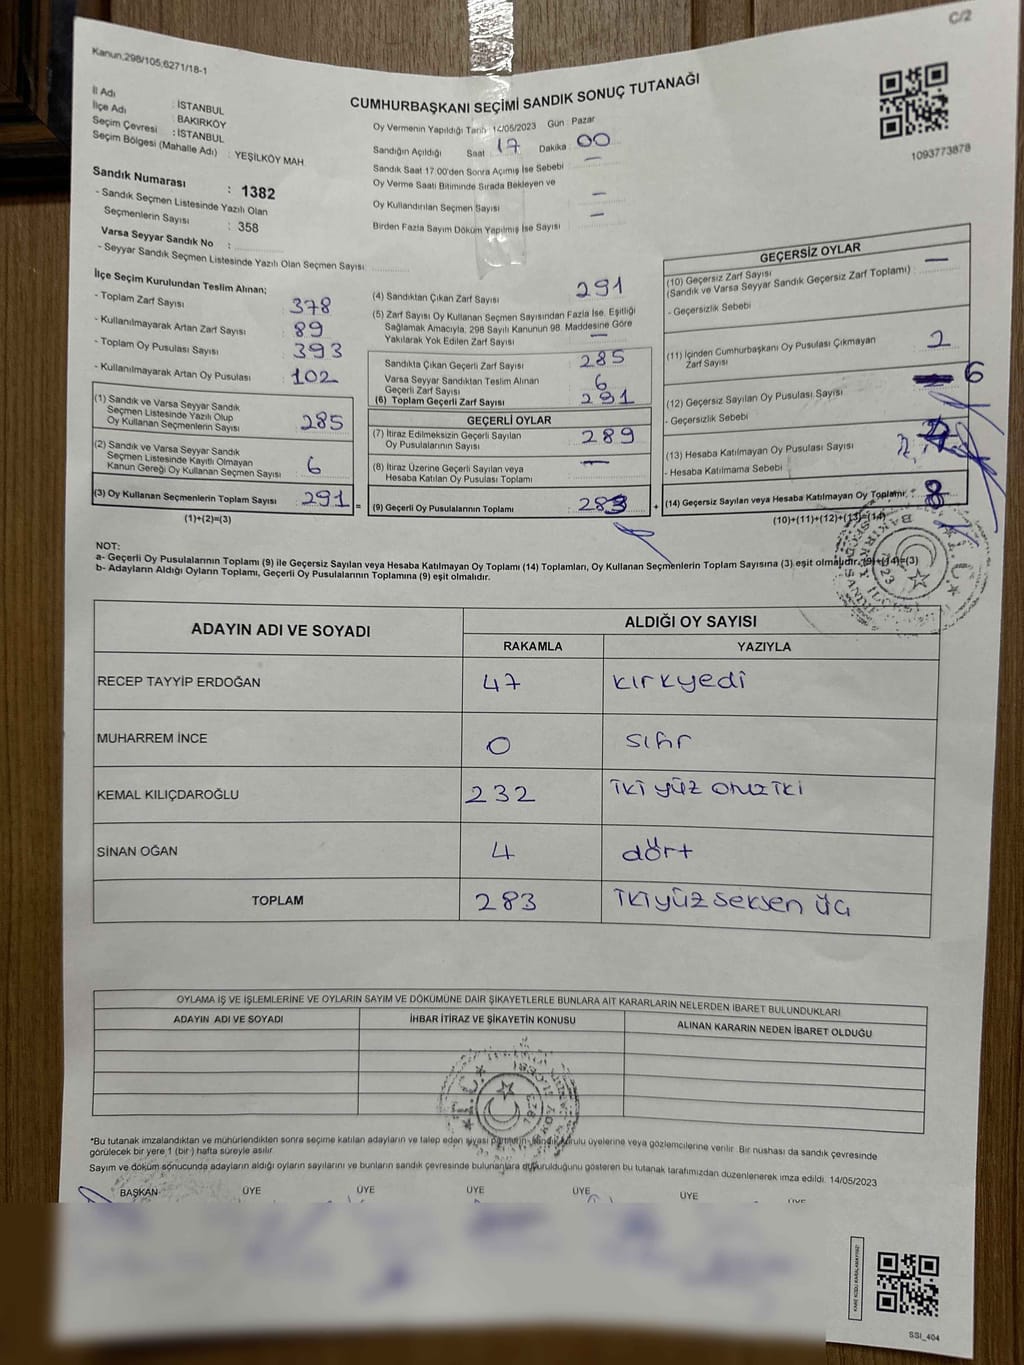 C/2
Kanun,298/105,6271/18-1
CUMHURBAŞKANI SEÇİMİ SANDIK SONUÇ TUTANAĞI
İl Adı : İSTANBUL
İlçe Adı : BAKIRKÖY
Seçim Çevresi : İSTANBUL
Seçim Bölgesi (Mahalle Adı) : YEŞİLKÖY MAH
Sandık Numarası : 1382
- Sandık Seçmen Listesinde Yazılı Olan
Seçmenlerin Sayısı : 358
Varsa Seyyar Sandık No :
- Seyyar Sandık Seçmen Listesinde Yazılı Olan Seçmen Sayısı
Oy Vermenin Yapıldığı Tarih : 14/05/2023 Gün : Pazar
Sandığın Açıldığı Saat : 17 Dakika : 00
Sandık Saat 17.00'den Sonra Açımış İse Sebebi : —
Oy Verme Saati Bitiminde Sırada Bekleyen ve
Oy Kullandırılan Seçmen Sayısı —
Birden Fazla Sayım Döküm Yapılmış İse Sayısı —
1093773878
İlçe Seçim Kurulundan Teslim Alınan;
- Toplam Zarf Sayısı : 378
- Kullanılmayarak Artan Zarf Sayısı : 89
- Toplam Oy Pusulası Sayısı : 393
- Kullanılmayarak Artan Oy Pusulası : 102
(1) Sandık ve Varsa Seyyar Sandık
Seçmen Listesinde Yazılı Olup
Oy Kullanan Seçmenlerin Sayısı : 285
(2) Sandık ve Varsa Seyyar Sandık
Seçmen Listesinde Kayıtlı Olmayan
Kanun Gereği Oy Kullanan Seçmen Sayısı : 6
(3) Oy Kullanan Seçmenlerin Toplam Sayısı : 291
(1)+(2)=(3)
=
(4) Sandıktan Çıkan Zarf Sayısı : 291
(5) Zarf Sayısı Oy Kullanan Seçmen Sayısından Fazla İse, Eşitliği
Sağlamak Amacıyla, 298 Sayılı Kanunun 98. Maddesine Göre
Yakılarak Yok Edilen Zarf Sayısı : —
Sandıkta Çıkan Geçerli Zarf Sayısı : 285
Varsa Seyyar Sandıktan Teslim Alınan
Geçerli Zarf Sayısı : 6
(6) Toplam Geçerli Zarf Sayısı : 291
GEÇERLİ OYLAR
(7) İtiraz Edilmeksizin Geçerli Sayılan
Oy Pusulalarının Sayısı : 289
(8) İtiraz Üzerine Geçerli Sayılan veya
Hesaba Katılan Oy Pusulası Toplamı : —
(9) Geçerli Oy Pusulalarının Toplamı : 283
+
GEÇERSİZ OYLAR
(10) Geçersiz Zarf Sayısı
(Sandık ve Varsa Seyyar Sandık Geçersiz Zarf Toplamı) : —
- Geçersizlik Sebebi
(11) İçinden Cumhurbaşkanı Oy Pusulası Çıkmayan
Zarf Sayısı : 2
(12) Geçersiz Sayılan Oy Pusulası Sayısı : 6
- Geçersizlik Sebebi
(13) Hesaba Katılmayan Oy Pusulası Sayısı
- Hesaba Katılmama Sebebi
(14) Geçersiz Sayılan veya Hesaba Katılmayan Oy Toplamı, : 8
(10)+(11)+(12)+(13)=(14)
NOT:
a- Geçerli Oy Pusulalarının Toplamı (9) ile Geçersiz Sayılan veya Hesaba Katılmayan Oy Toplamı (14) Toplamları, Oy Kullanan Seçmenlerin Toplam Sayısına (3) eşit olmalıdır. (9)+(14)=(3)
b- Adayların Aldığı Oyların Toplamı, Geçerli Oy Pusulalarının Toplamına (9) eşit olmalıdır.
ADAYIN ADI VE SOYADI
ALDIĞI OY SAYISI
RAKAMLA YAZIYLA
RECEP TAYYİP ERDOĞAN 47 kırkyedi
MUHARREM İNCE 0 sıfır
KEMAL KILIÇDAROĞLU 232 iki yüz otuziki
SİNAN OĞAN 4 dört
TOPLAM 283 ikiyüz seksen üç
OYLAMA İŞ VE İŞLEMLERİNE VE OYLARIN SAYIM VE DÖKÜMÜNE DAİR ŞİKAYETLERLE BUNLARA AİT KARARLARIN NELERDEN İBARET BULUNDUKLARI
ADAYIN ADI VE SOYADI İHBAR İTİRAZ VE ŞİKAYETİN KONUSU ALINAN KARARIN NEDEN İBARET OLDUĞU
*Bu tutanak imzalandıktan ve mühürlendikten sonra seçime katılan adayların ve talep eden siyasi partilerin sandık kurulu üyelerine veya gözlemcilerine verilir. Bir nüshası da sandık çevresinde
görülecek bir yere 1 (bir ) hafta süreyle asılır.
Sayım ve döküm sonucunda adayların aldığı oyların sayılarını ve bunların sandık çevresinde bulunanlara duyurulduğunu gösteren bu tutanak tarafımızdan düzenlenerek imza edildi. 14/05/2023
BAŞKAN ÜYE ÜYE ÜYE ÜYE ÜYE ÜYE
SSI_404